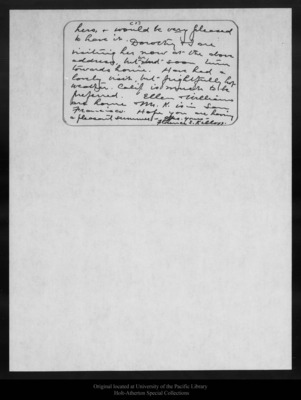 here, & would be very pleased
to have it. Dorothy & I are
visiting her now at the above
address, but shall soon turn
towards home. Have had a
lovely visit, but frightfully hot
weather. Calif. is much to be
preferred. Ellen & Williams
are home & Mr. K. is in San
Francisco. Hope you are having
a pleasant summer
Original located at University of the Pacific Library
Holt-Atherton Special Collections